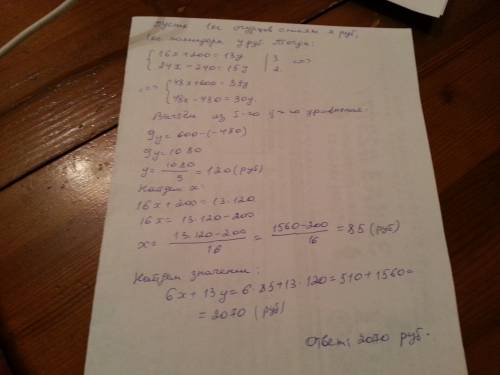 Пусть 1 кг огурцов стоит x руб,
1 кг помидора y руб. Тогда:
{ 16x + 200 = 13y | 3
{ 24x - 240 = 15y | 2 <=>
<=> { 48x + 600 = 39y
{ 48x - 480 = 30y.
Вычтем из 1-го 2-го уравнения:
9y = 600 - (-480)
9y = 1080
y = 1080/9 = 120 (руб)
Найдем x:
16x + 200 = 13 · 120
16x = 13 · 120 - 200
x = (13 · 120 - 200)/16 = (1560 - 200)/16 = 85 (руб)
Найдем значение:
6x + 13y = 6 · 85 + 13 · 120 = 510 + 1560 =
= 2070 (руб)
Ответ: 2070 руб.